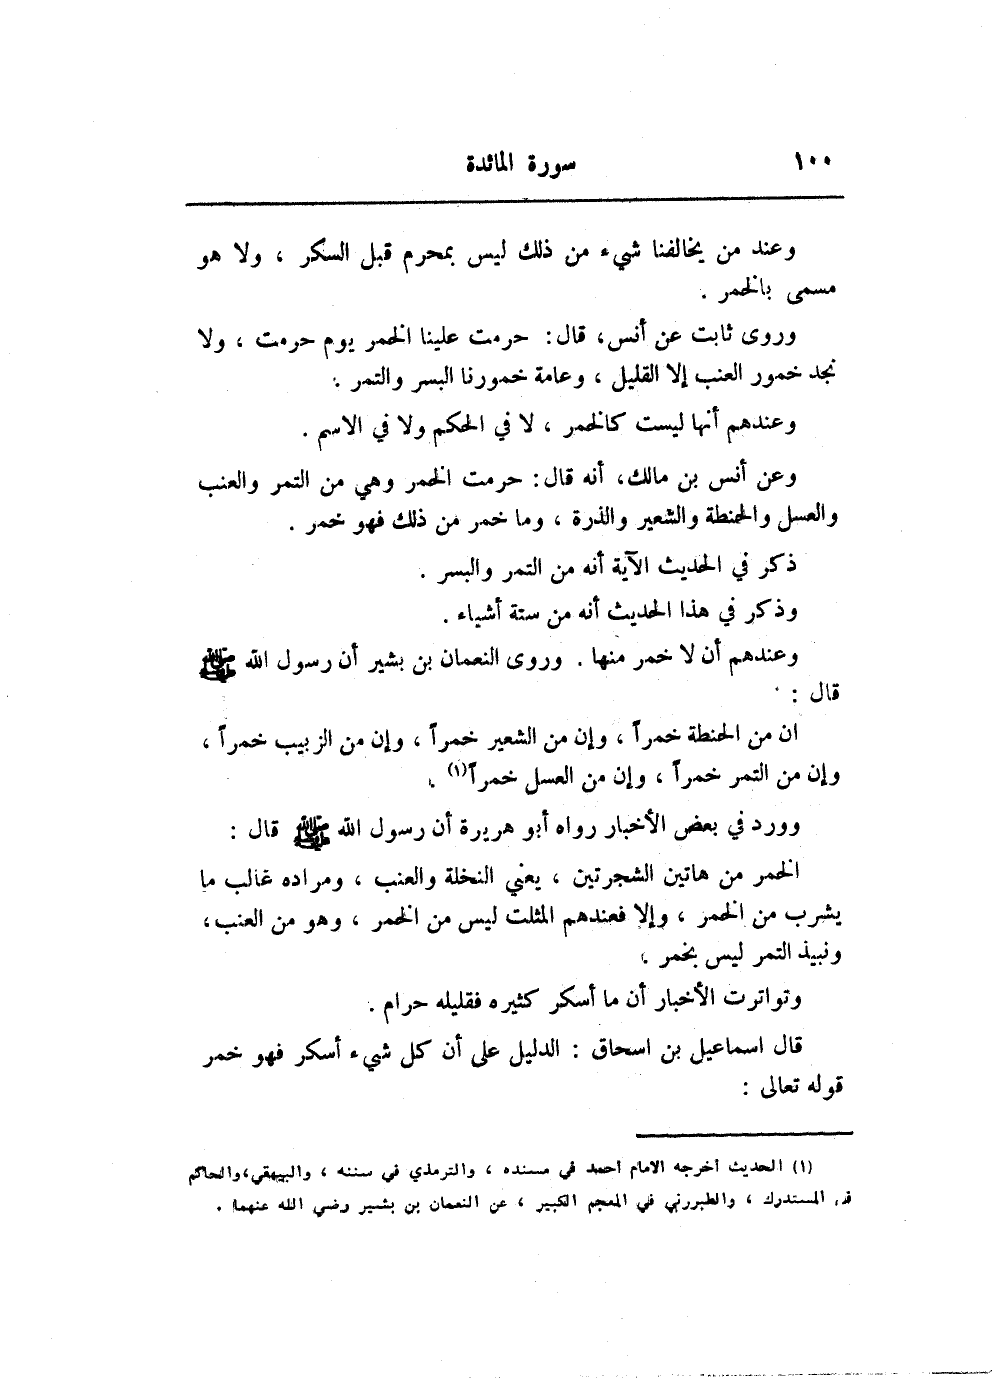 ١٠٠ سورة المائدة
وعند من يخالفنا شيء من ذلك ليس بمحرم قبل السكر ، ولا هو
مسمى بالخمر .
وروى ثابت عن أنس، قال: حرمت علينا الخمر يوم حرمت ، ولا
نجد خمور العنب إلا القليل ، وعامة خمورنا البسر والتمر .
وعندهم أنها ليست كالخمر ، لا في الحكم ولا في الاسم .
وعن أنس بن مالك، أنه قال: حرمت الخمر وهي من التمر والعنب
والعسل والحنطة والشعير والذرة ، وما خمر من ذلك فهو خمر .
ذكر في الحديث الآية أنه من التمر والبسر .
وذكر في هذا الحديث أنه من ستة أشياء .
وعندهم أن لا خمر منها . وروى النعمان بن بشير أن رسول الله ﷺ
قال :
ان من الحنطة خمراً ، وإن من الشعير خمراً ، وإن من الزبيب خمراً ،
وإن من التمر خمراً ، وإن من العسل خمراً(١) .
وورد في بعض الأخبار رواه أبو هريرة أن رسول الله ﷺ قال :
الخمر من هاتين الشجرتين ، يعني النخلة والعنب ، ومراده غالب ما
يشرب من الخمر ، وإلا فعندهم المثلت ليس من الخمر ، وهو من العنب،
ونبيذ التمر ليس بخمر .
وتواترت الأخبار أن ما أسكر كثيره فقليله حرام .
قال اسماعيل بن اسحاق : الدليل على أن كل شيء أسكر فهو خمر
قوله تعالى :
(١) الحديث أخرجه الامام أحمد في مسنده ، والترمذي في سننه ، والبيهقي،والحاكم
في المستدرك ، والطبررني في المعجم الكبير ، عن النعمان بن بشير رضي الله عنهما .